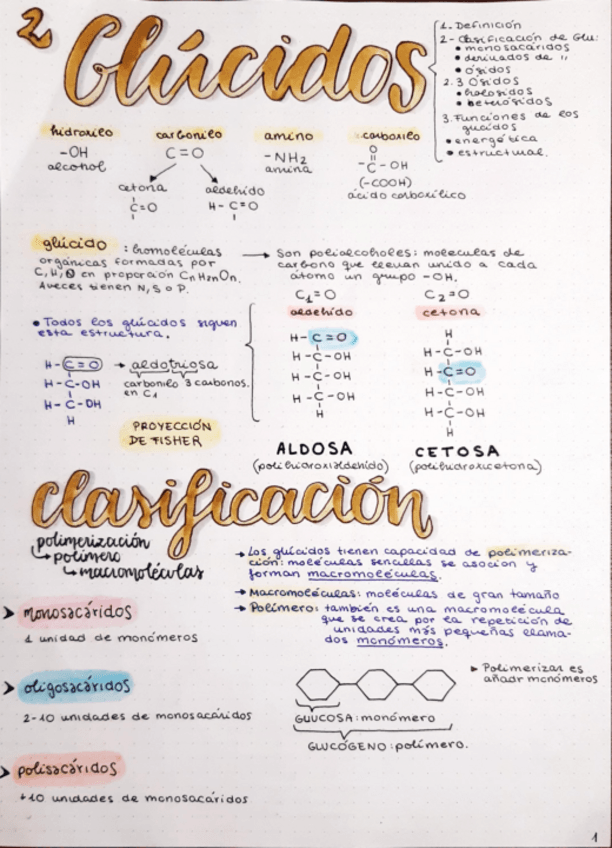 2 Glúcidos
1. Definición
2- Clasificación de Glu:
• monosacáridos
• derivados de "
• ósidos
2.3 Ósidos
• holosidos
• heterósidos
3. Funciones de los
glúcidos
• energética
• estructural.
hidroxilo carbonilo amino carboxilo
-OH C=O -NH2 O
alcohol amina -C-OH
(-COOH)
ácido carboxílico
cetona aldehído
C=O H-C=O
glúcido: biomoléculas
orgánicas formadas por
C, H, O en proporción CnH2nOn.
Aveces tienen N, S o P.
→ Son polialcoholes: moleculas de
carbono que llevan unido a cada
átomo un grupo -OH.
C1=O C2=O
aldehido cetona
• Todos los glúcidos siguen
esta estructura.
H-C=O → aldotriosa
H-C-OH carbonilo 3 carbonos.
H-C-OH en C1
H
PROYECCIÓN
DE FISHER
H-C=O
H-C-OH
H-C-OH
H-C-OH
H
ALDOSA
(polihidroxialdehido)
H
H-C-OH
H-C=O
H-C-OH
H-C-OH
H
CETOSA
(polihidroxicetona)
clasificación
polimerización
↳ polímero
↳ macromoléculas
→ Los glúcidos tienen capacidad de polimeriza-
ción: moléculas sencillas se asocian y
forman macromoléculas.
→ Macromoléculas: moléculas de gran tamaño
→ Polímero: también es una macromolécula
que se crea por la repetición de
unidades más pequeñas llama-
dos monómeros.
> monosacáridos
1 unidad de monómeros
> oligosacáridos
2-10 unidades de monosacáridos
> polisacáridos
+10 unidades de monosacáridos
▸ Polimerizar es
añadir monómeros
GLUCOSA: monómero
GLUCÓGENO: polímero.
1